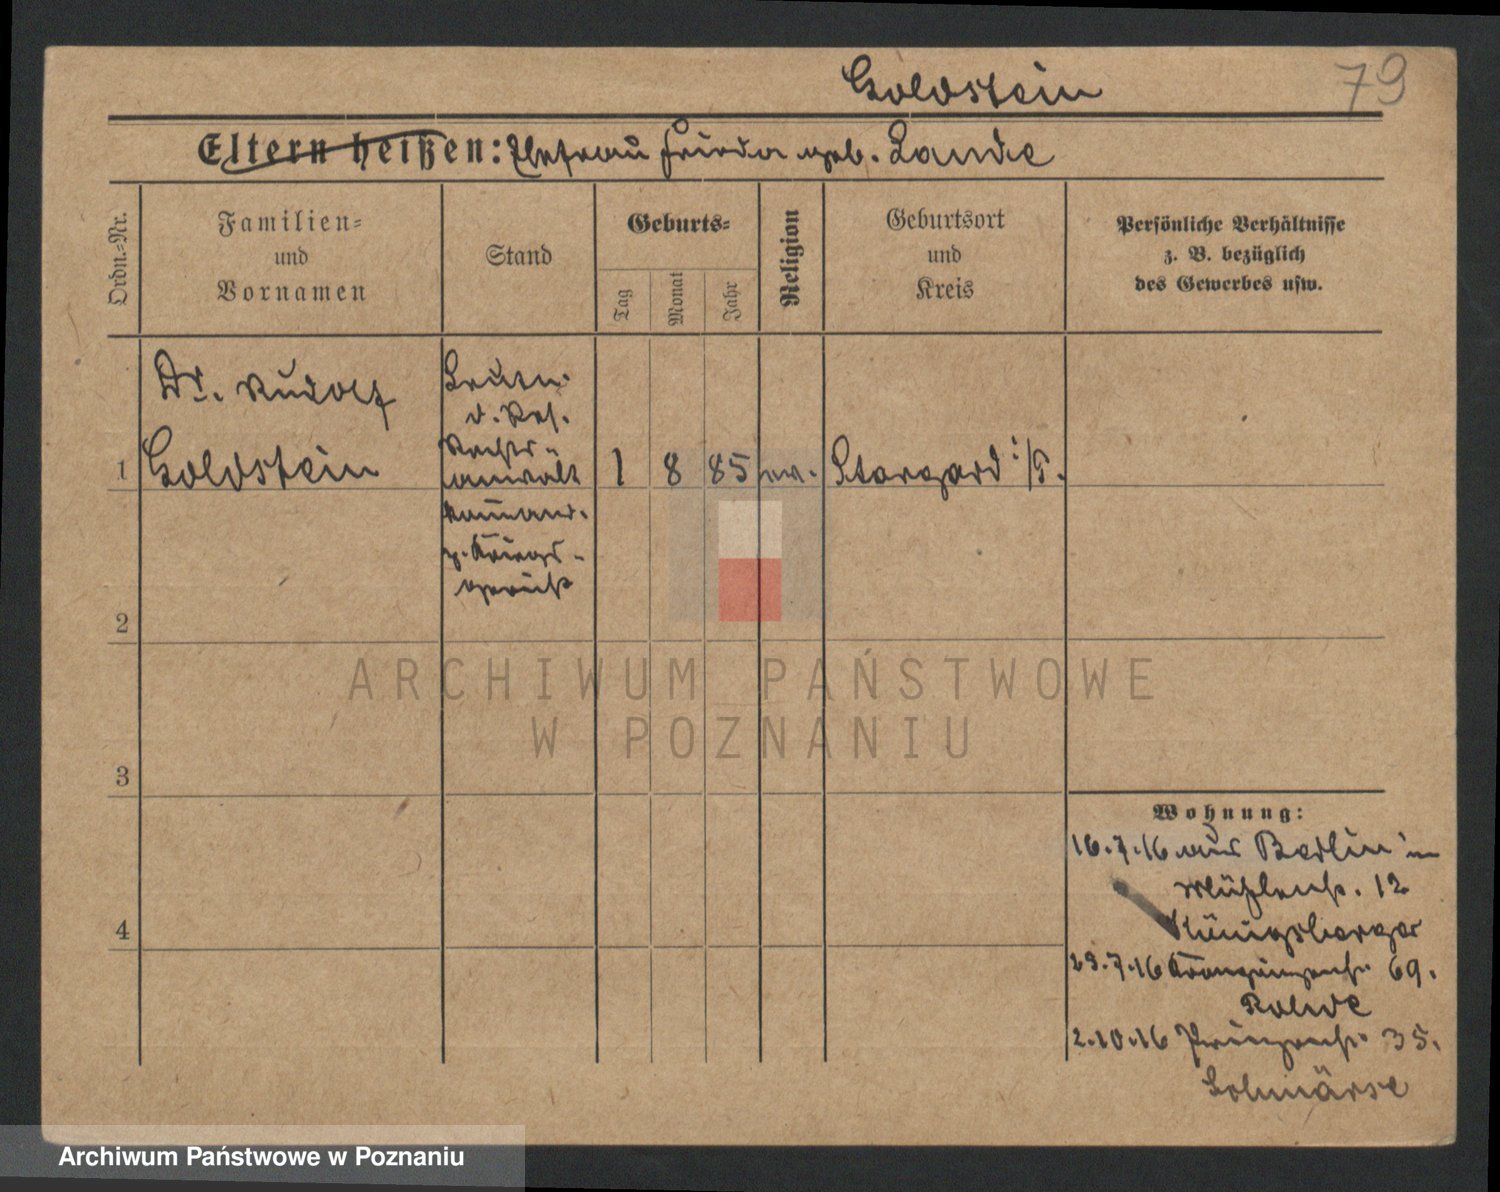 Goldstein
79
Eltern heißen: Ehefrau Frieda geb. Lande
Ordn.-Nr.
Familien-
und
Vornamen
Stand
Geburts-
Tag
Monat
Jahr
Religion
Geburtsort
und
Kreis
Persönliche Verhältnisse
z. B. bezüglich
des Gewerbes usw.
Dr. Rudolf
Goldstein
Leutn.
d. Res.
Rechts-
anwalt
Kommand.
z. Kriegs-
gericht
1
1 8 85
Stargard i/P.
2
3
4
Wohnung:
16.7.16 aus Berlin in
Mühlenstr. 12
Königsberger
29.7.16 Kronprinzenstr. 69.
Rohde
2.10.16 Prinzenstr. 35.
ARCHIWUM PAŃSTWOWE
W POZNANIU
Archiwum Państwowe w Poznaniu